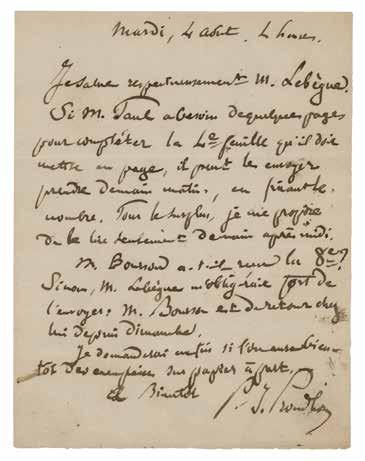 Mardi, 4 août, 4 heures.
Je salue respectueusement M. Lebègue.
Si M. Paul a besoin de quelques pages
pour compléter la 4e feuille qu'il doit
mettre en page, il peut les envoyer
prendre demain matin, en fixant le
nombre. Tout le surplus, je me propose
de le lire seulement demain après midi.
M. Bousson a-t-il reçu la 8e?
Sinon, M. Lebègue m'obligerait fort de
l'envoyer: M. Bousson est de retour chez
lui depuis dimanche.
Je demanderai si l'on aura bien-
tôt des exemplaires sur papier à part.
Bientôt
P. J. Proudhon